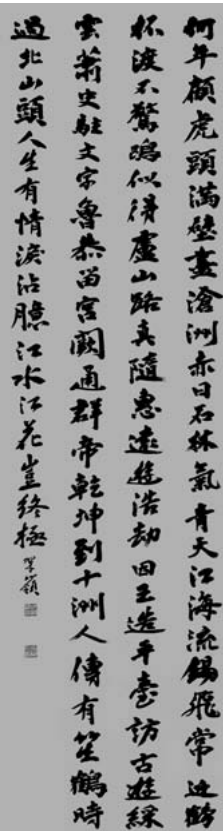 何年顧虎頭滿壁畫滄洲赤日石林氣青天江海流錫飛常近鶴
杯渡不驚鷗似得廬山路真隨惠遠遊浩劫因王造平臺訪古遊綵
雲蕭史駐文字魯恭留宮闕通群帝乾坤到十洲人傳有笙鶴時
過北山頭人生有情淚沾臆江水江花豈終極